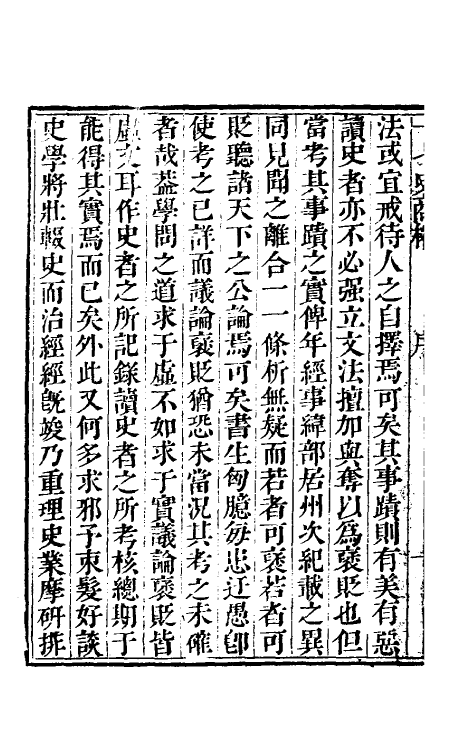 法或宜戒待人之自擇焉可矣其事蹟則有美有惡
讀史者亦不必强立文法擅加與奪以爲襃貶也但
當考其事蹟之實俾年經事緯部居州次紀載之異
同見聞之離合一一條析無疑而若者可襃若者可
貶聽諸天下之公論焉可矣書生匈臆每患迂愚卽
使考之已詳而議論襃貶猶恐未當況其考之未確
者哉葢學問之道求于虛不如求于實議論襃貶皆
虛文耳作史者之所記錄讀史者之所考核總期于
能得其實焉而已矣外此又何多求邪予束髮好談
史學將壯輟史而治經經旣竣乃重理史業摩硏排